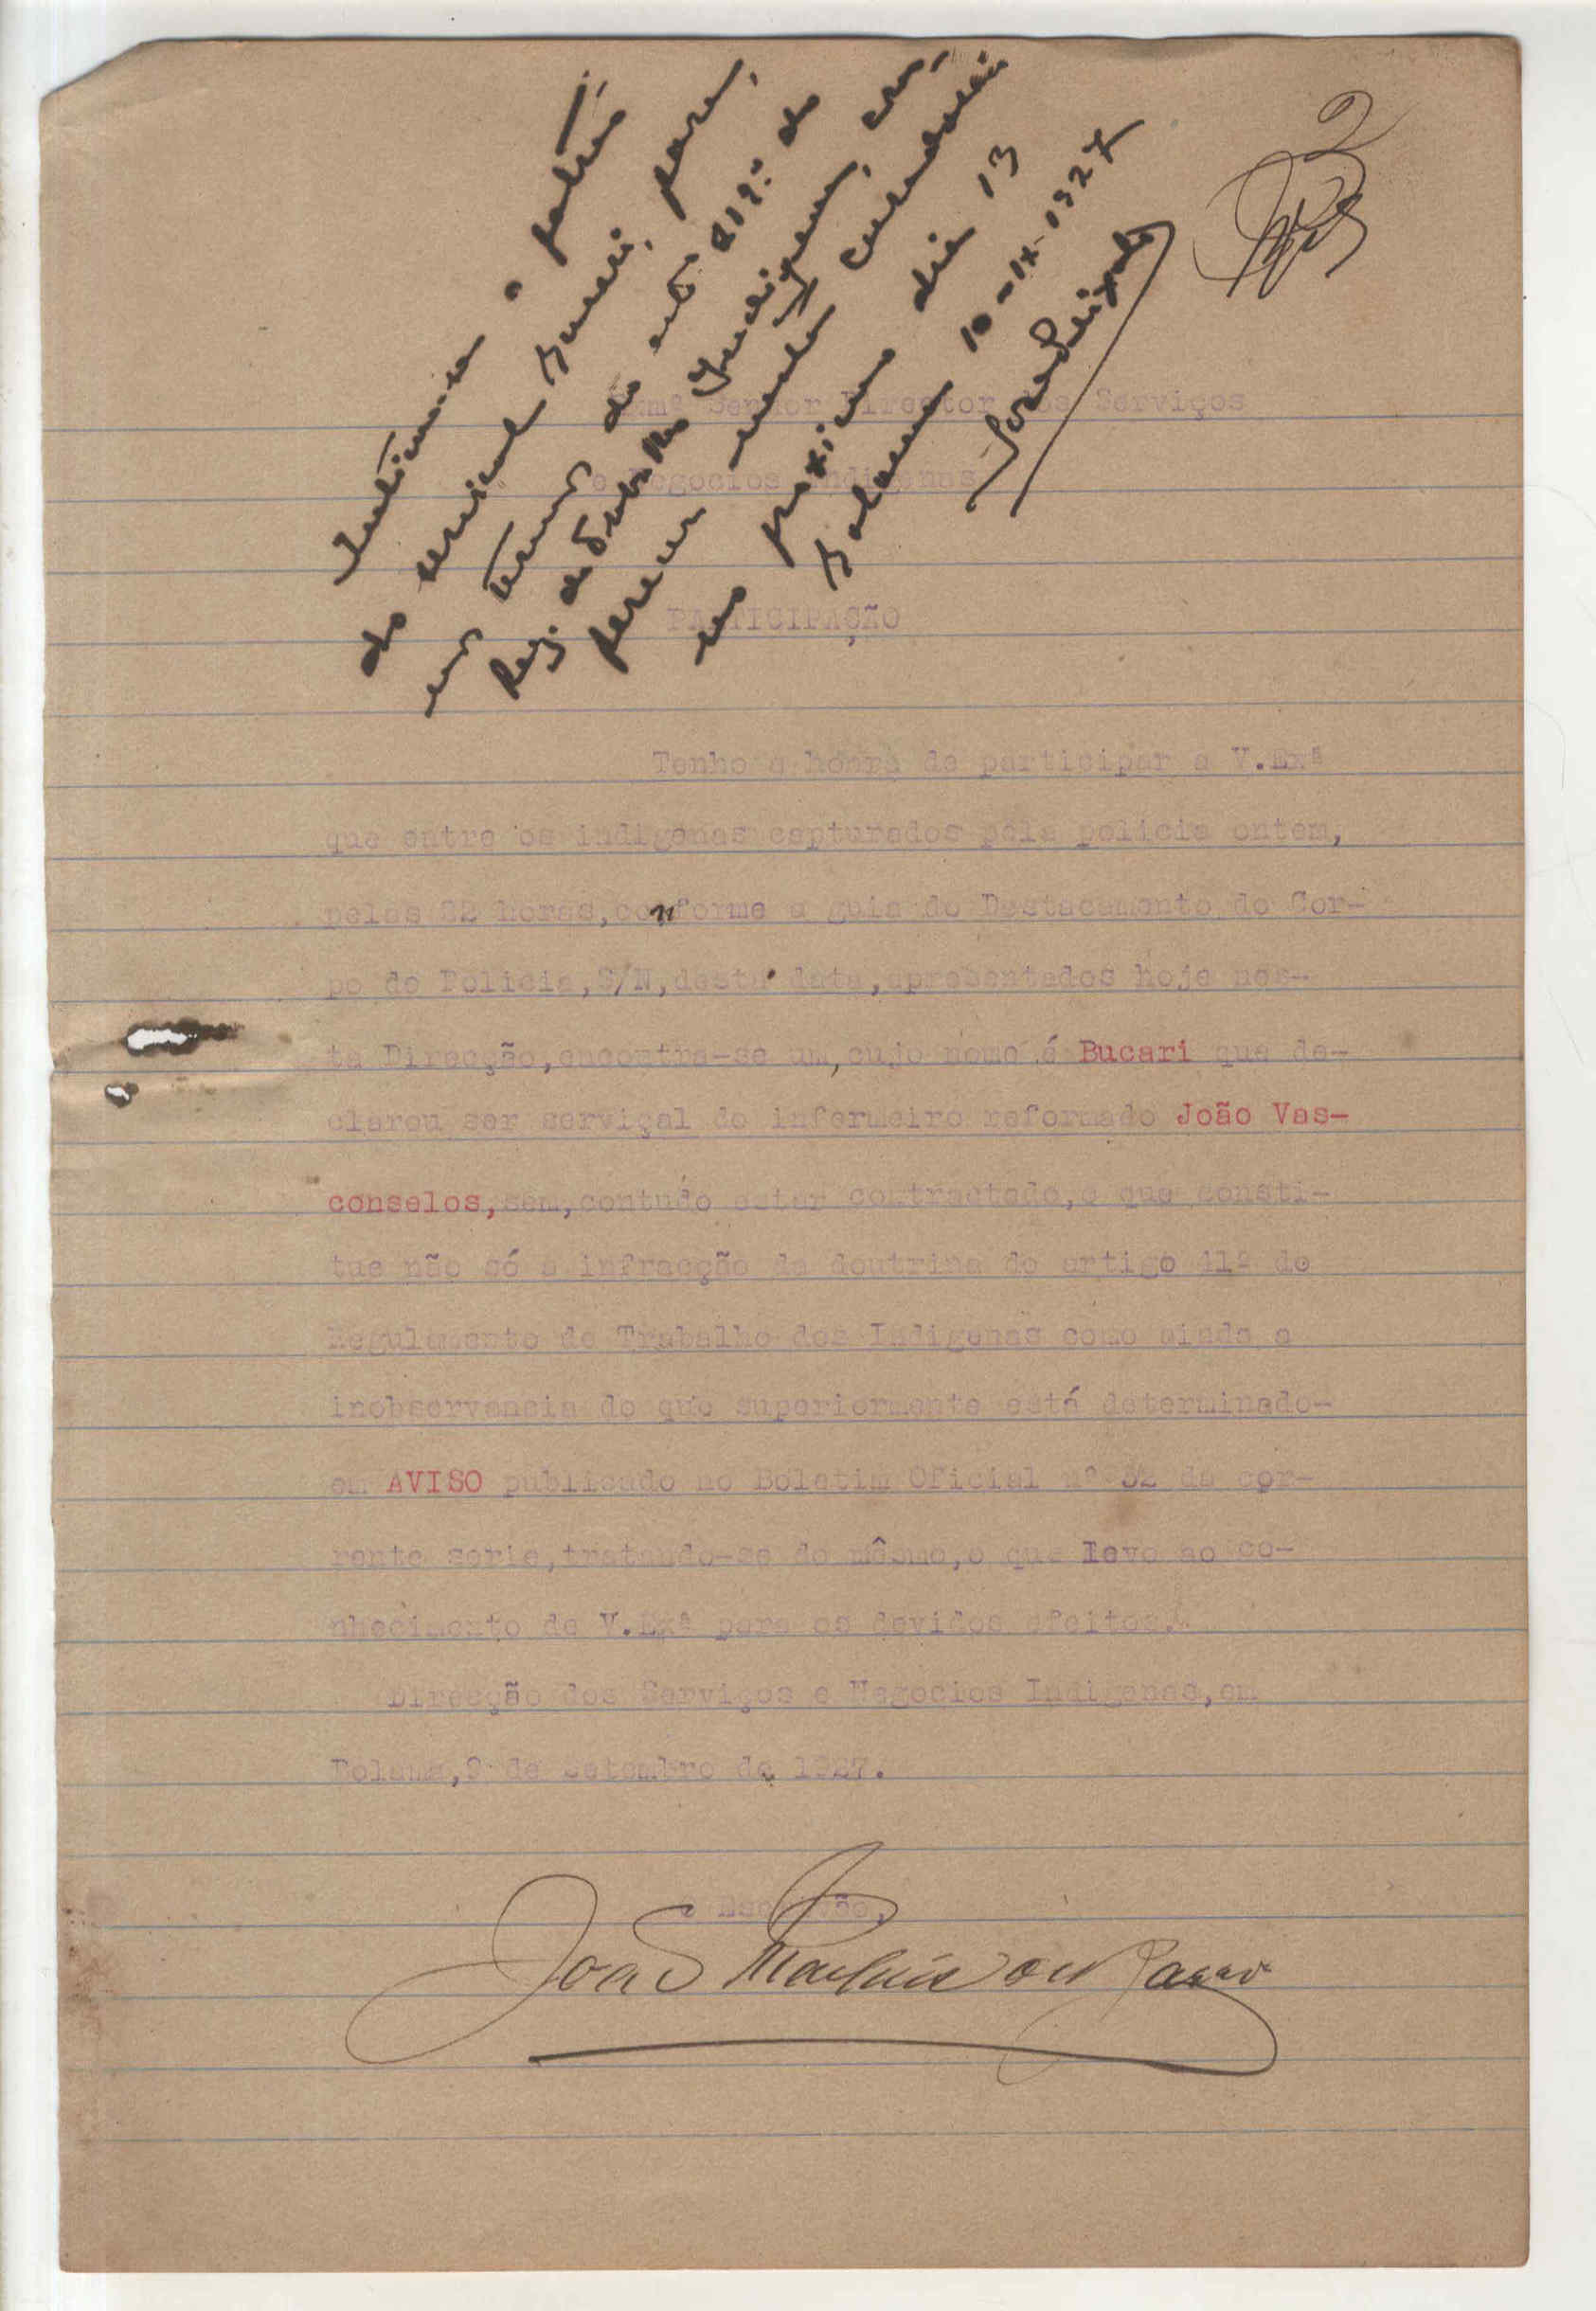 2
Intime-se o patrão
do serviçal Bucari, para,
nos termos do artº 219º do
Reg. do Trabalho Indigena, com-
parecer nesta Curadoria
no proximo dia 13
Bolama 10-IX-1927
Exmº Senhor Director dos Serviços
e Negocios Indigenas
PARTICIPAÇÃO
Tenho a honra de participar a V.Exª
que entre os indigenas capturados pela policia ontem,
pelas 22 horas,conforme a guia do Destacamento do Cor-
po de Policia,S/N,desta data,apresentados hoje nes-
ta Direcção,encontra-se um,cujo nome é Bucari que de-
clarou ser serviçal do infermeiro reformado João Vas-
conselos,sem,contudo estar contractado,o que consti-
tue não só a infracção da doutrina do artigo 11º do
Regulamento de Trabalho dos Indigenas como ainda a
inobservancia do que superiormente está determinado-
em AVISO publicado no Boletim Oficial nº 32 da cor-
rente serie,tratando-se do mêsmo,o que levo ao co-
nhecimento de V.Exª para os devidos efeitos.
Direcção dos Serviços e Negocios Indigenas,em
Bolama,9 de Setembro de 1927.
O Escrivão,
João